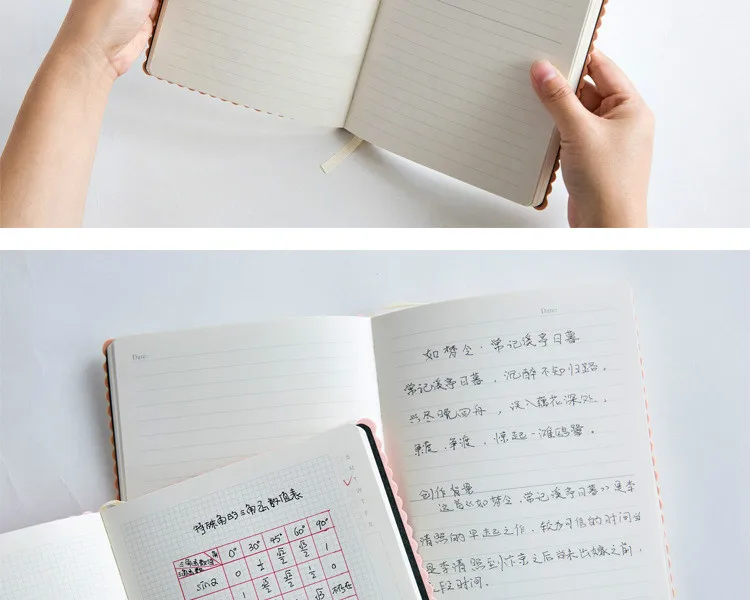 Date:
Date:
如梦令·常记溪亭日暮
常记溪亭日暮，沉醉不知归路。
兴尽晚回舟，误入藕花深处。
争渡，争渡，惊起一滩鸥鹭。
创作背景
这首《如梦令·常记溪亭日暮》是李
清照的早起之作，较为可信的时间当
是李清照到汴京之后尚未出嫁之前，
段时间.
特殊角的三角函数值表
0° 30° 45° 60° 90°
sinα 0 1/2 √2/2 √3/2 1
1 √3/2 √2/2 1/2 0
√3